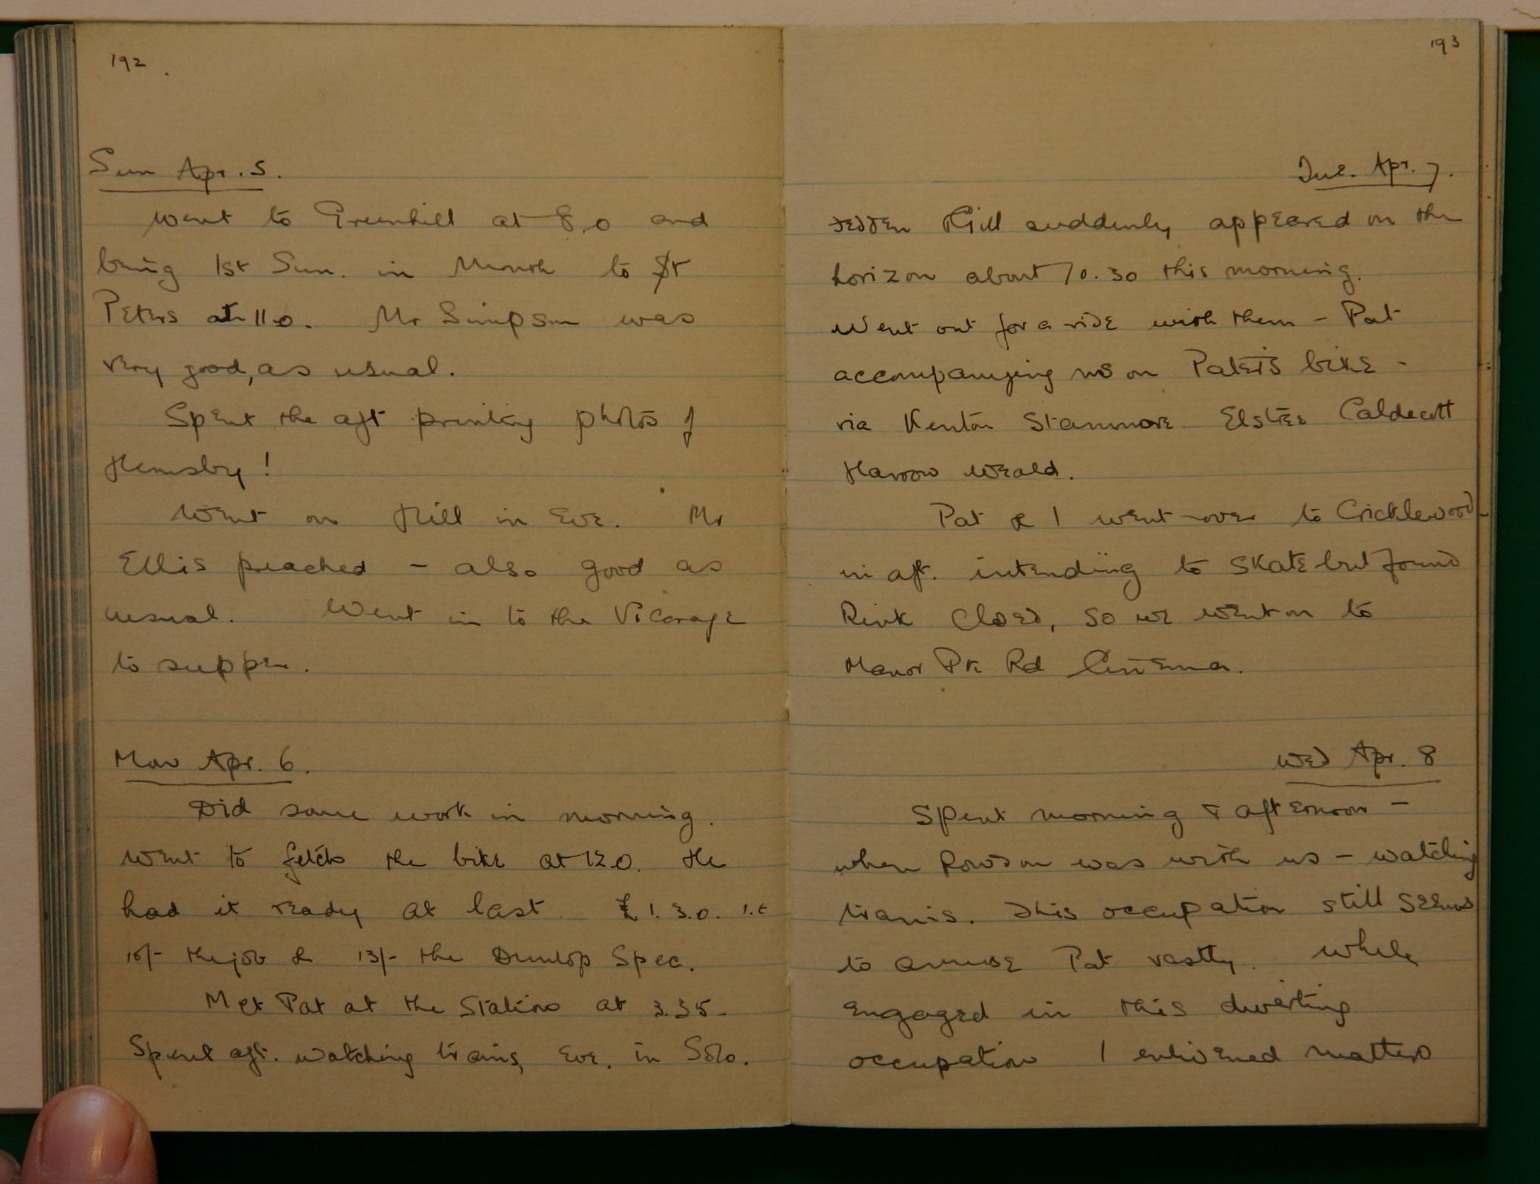 192
Sun Apr. 5.
Went to Greenhill at 8.0 and
being 1st Sun. in Month to St
Peters at 11.0. Mr Simpson was
very good, as usual.
Spent the aft printing photos of
Hemsby!
Went on Hill in Eve. Mr
Ellis preached - also good as
usual. Went in to the Vicarage
to supper.
Mon Apr. 6.
Did some work in morning.
Went to fetch the bike at 12.0. He
had it ready at last £1.3.0. i.e
10/- the job & 13/- the Dunlop Spec.
Met Pat at the Station at 3.35.
Spent aft. watching trains, Eve. in Solo.
193
Tue. Apr. 7.
Gill suddenly appeared on the
horizon about 10.30 this morning.
Went out for a ride with them - Pat
accompanying us on bike -
via Kenton Stanmore Elstree Caldecott
Harrow Weald.
Pat & I went over to Cricklewood
in aft. intending to skate but found
Rink closed, so we went on to
Manor Pk Rd Cinema.
Wed Apr. 8
Spent morning & afternoon -
when Rowson was with us - watching
trains. This occupation still seems
to amuse Pat vastly. While
engaged in this diverting
occupation I enlivened matters